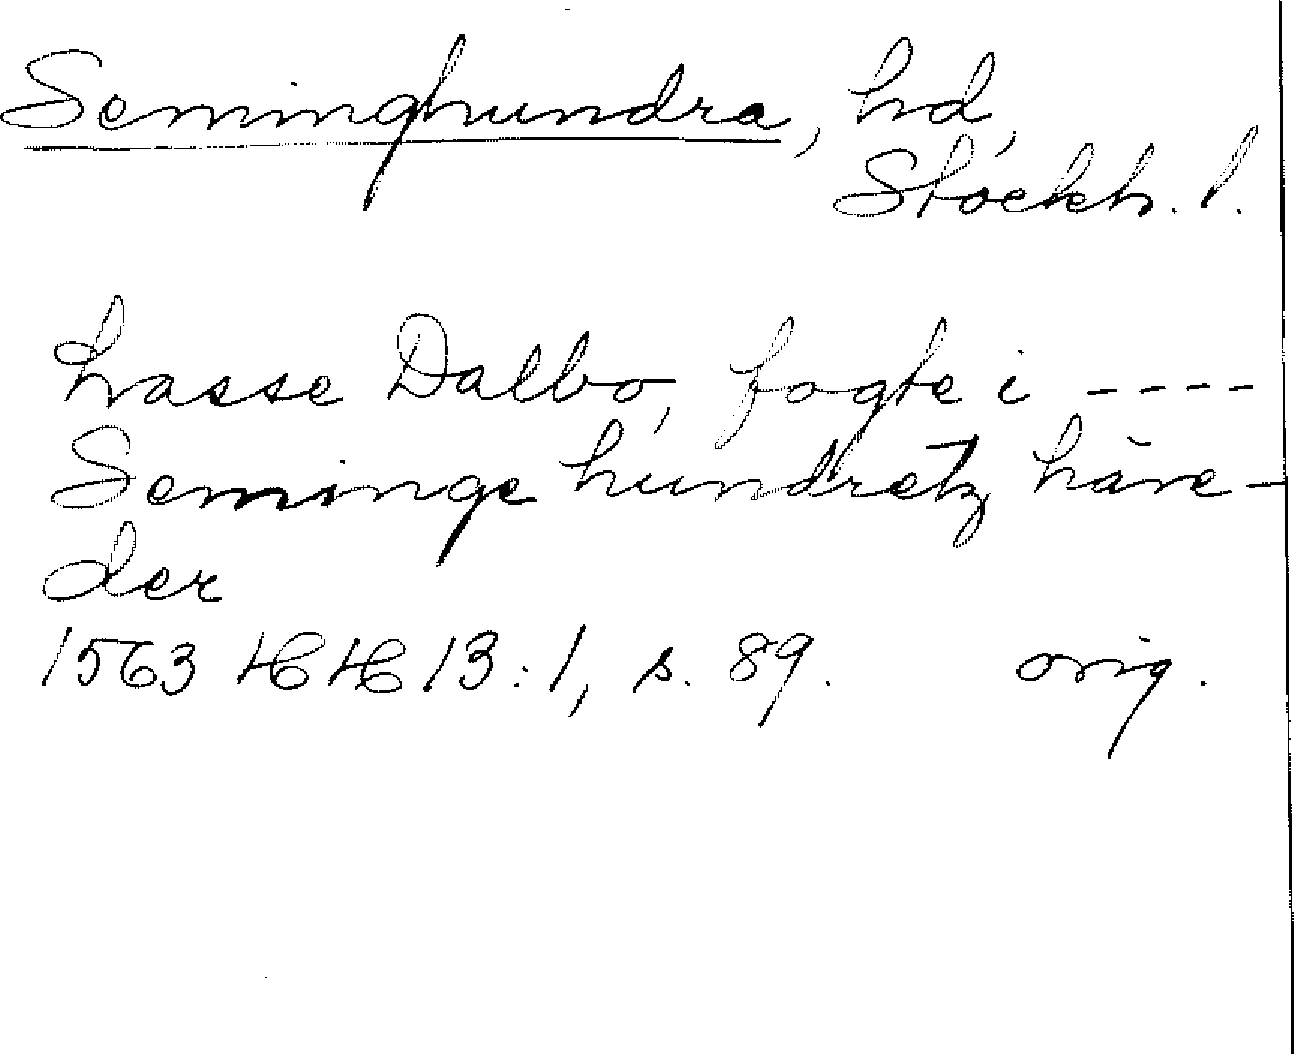 Seminghundra, hd,
Stockh. l.
Lasse Dalbo, fogte i ----
Seminge hundretz häre-
der
1563 HH 13:1, s. 89. orig.